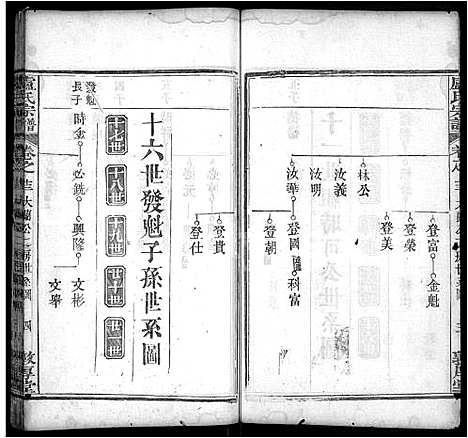 盧氏宗譜
林公
汝義
汝明
汝華
登富
登榮
登美
金魁
登國
科富
登朝
登貴
登仕
十六世發魁子孫世系圖
十七世
十八世
十九世
二十世
廿一世
發魁
長子
時金
必銑
興隆
文彬
文舉
盧氏宗譜
四
敦厚堂